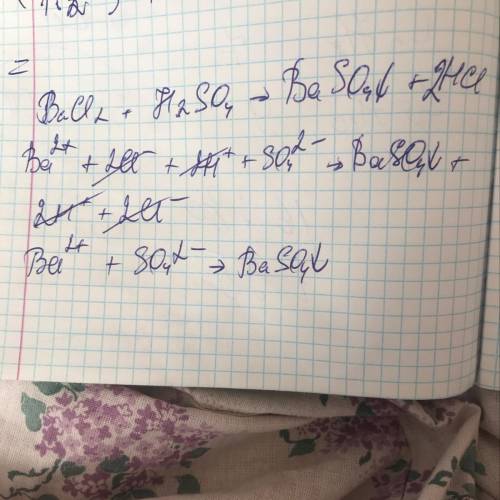 =
BaCl₂ + H₂SO₄ → BaSO₄↓ + 2HCl
Ba²⁺ + 2Cl⁻ + 2H⁺ + SO₄²⁻ → BaSO₄↓ +
2H⁺ + 2Cl⁻
Ba²⁺ + SO₄²⁻ → BaSO₄↓